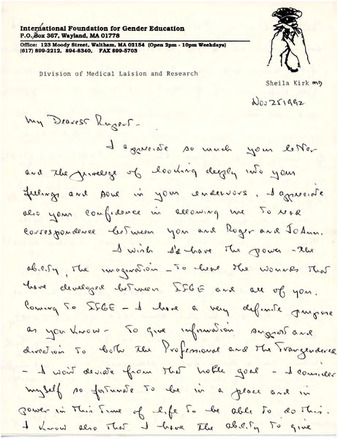 International Foundation for Gender Education
P.O. Box 367, Wayland, MA 01778
Office: 123 Moody Street, Waltham, MA 02154 (Open 2pm - 10pm Weekdays)
(617) 899-2212, 894-8340, FAX 899-5703
Division of Medical Laision and Research
Sheila Kirk MD
Nov 25 1992
My Dearest Rupert -
I appreciate so much your letter
and the privilege of looking deeply into your
feelings and soul in your endeavors. I appreciate
also your confidence in allowing me to read
correspondence between you and Roger and JoAnn.
I wish I'd have the power - the
ability, the imagination - to heal the wounds that
have developed between IFGE and all of you.
Coming to IFGE - I have a very definite purpose
as you know - To give information support and
direction to both the Professional and the Transgendered
- I won't deviate from that noble goal - I consider
myself so fortunate to be in a place and in
power in this time of life to be able to do this.
I know also that I have the ability to give